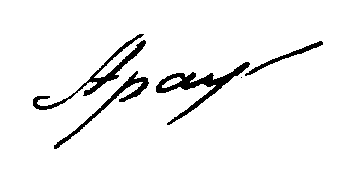 Арау